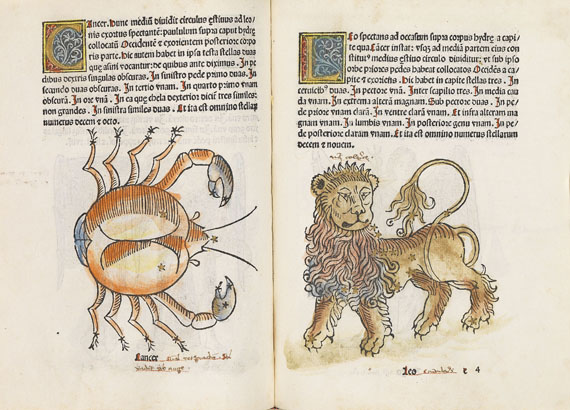 Cancer. hunc mediũ diuidit circulus estiuus ad leo
nis exortus spectantẽ: paululum supra caput hydrę
collocatũ. Occidentẽ & exorientem posteriore corpo
ris parte. Hic autem habet in ipsa testa stellas duas
que asini vocantur: de quibus ante diximus. In pe
dibus dextris singulas obscuras. In sinistro pede primo duas. In
secundo duas obscuras. In tertio vnam. In quarto primo vnam
obscurã. In ore vnã. In ea que chela dexterior dicit̃ tres similes:
non grandes. In sinistra similes duas. Et ita est omnino stellarum
numerus decem & octo.
Cancer
Leo spectans ad occasum supra corpus hydrę a capi
te qua Cácer instat: vsq; ad mediã partem eius con
stitut᷒ medius ęstiuo circulo diuiditur: vt sub ipso
orbe priores pedes habeat collocatos Occidẽs a ca
pite & exoriens. Hic habet in capite stellas tres. In
ceruicib᷒ duas. In pectore vnã. Inter scapilio tres. In media cau
da vnam. In extrema alterã magnam. Sub pectore duas. In pe/
de priore vnam clarã. In ventre clarã vnam. Et infra alteram ma
gnam vnam. In lumbis vnam. In posteriore genu vnam. In pe/
de posteriore claram vnam. Et ita est omnino numerus stellarum
decem & nouem.
Leo
c 4